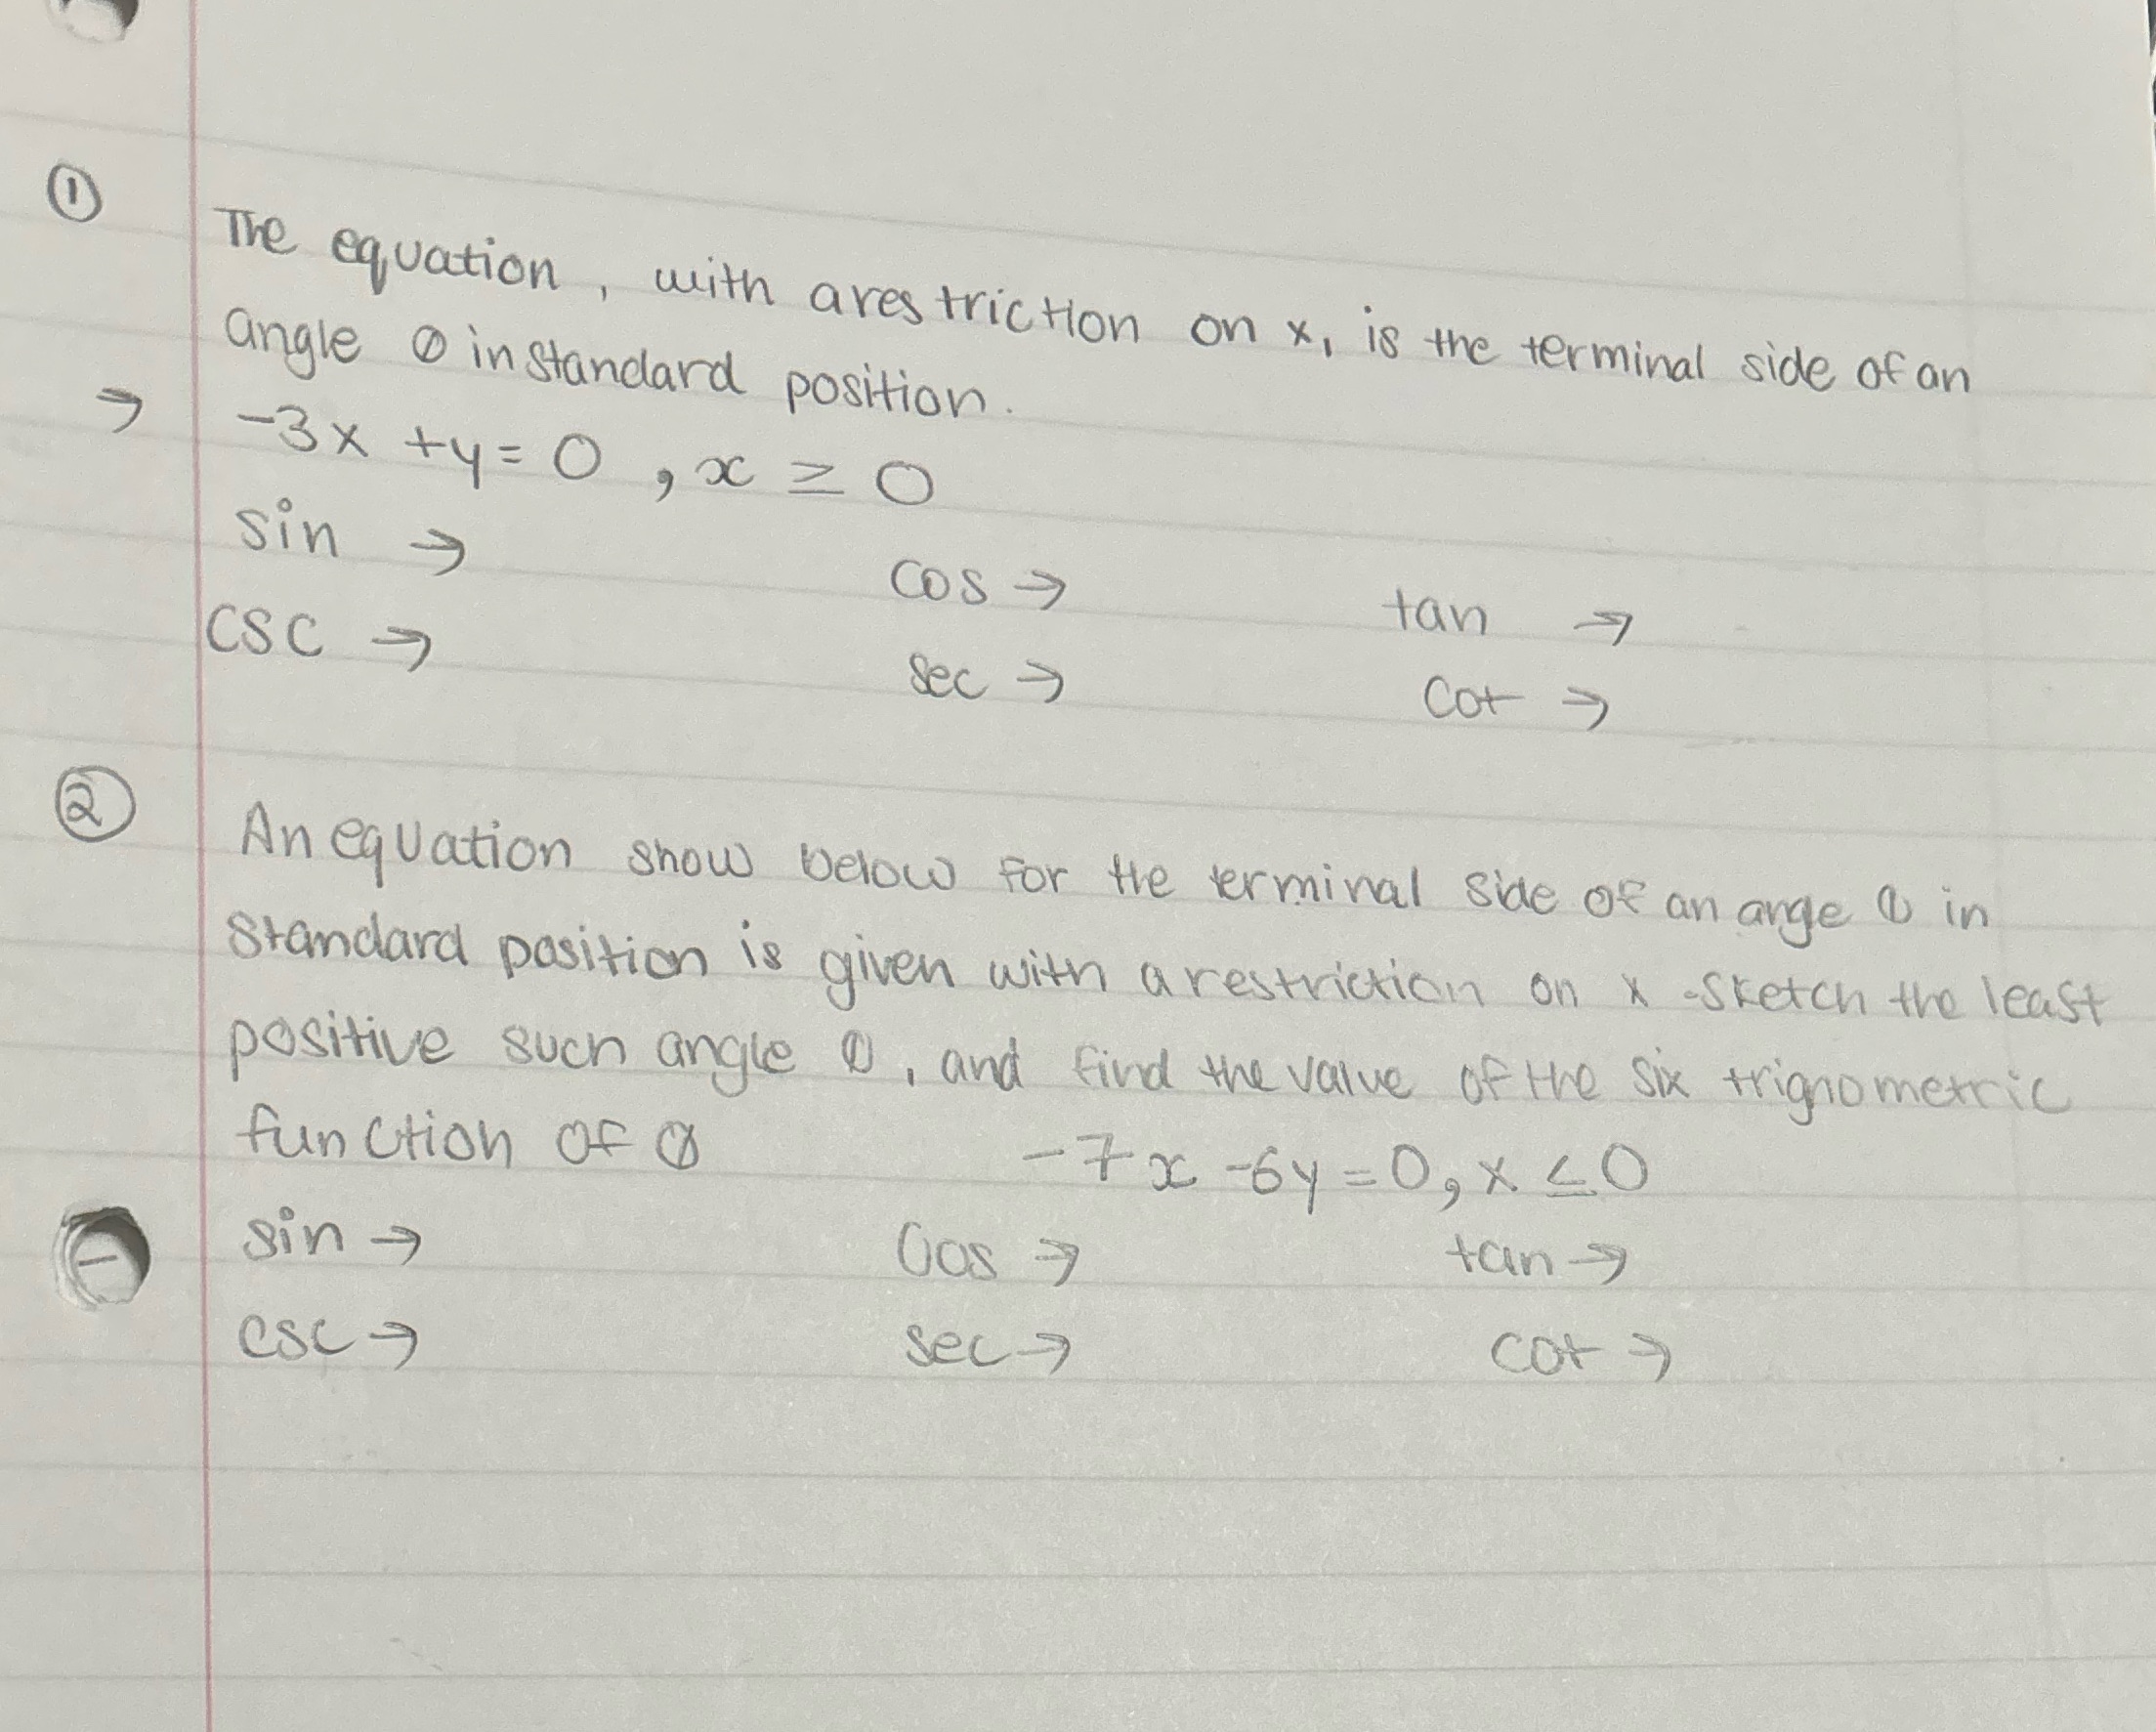 ① The equation, with a restriction on x, is the terminal side of an
angle θ in standard position.
→ -3x + y = 0 , x ≥ 0
sin → cos → tan →
csc → sec → cot →
② An equation show below for the terminal side of an ange θ in
standard position is given with a restriction on x -sketch the least
positive such angle θ, and find the value of the six trignometric
function of θ -7x -6y = 0, x ≤ 0
sin → cos → tan →
csc → sec → cot →